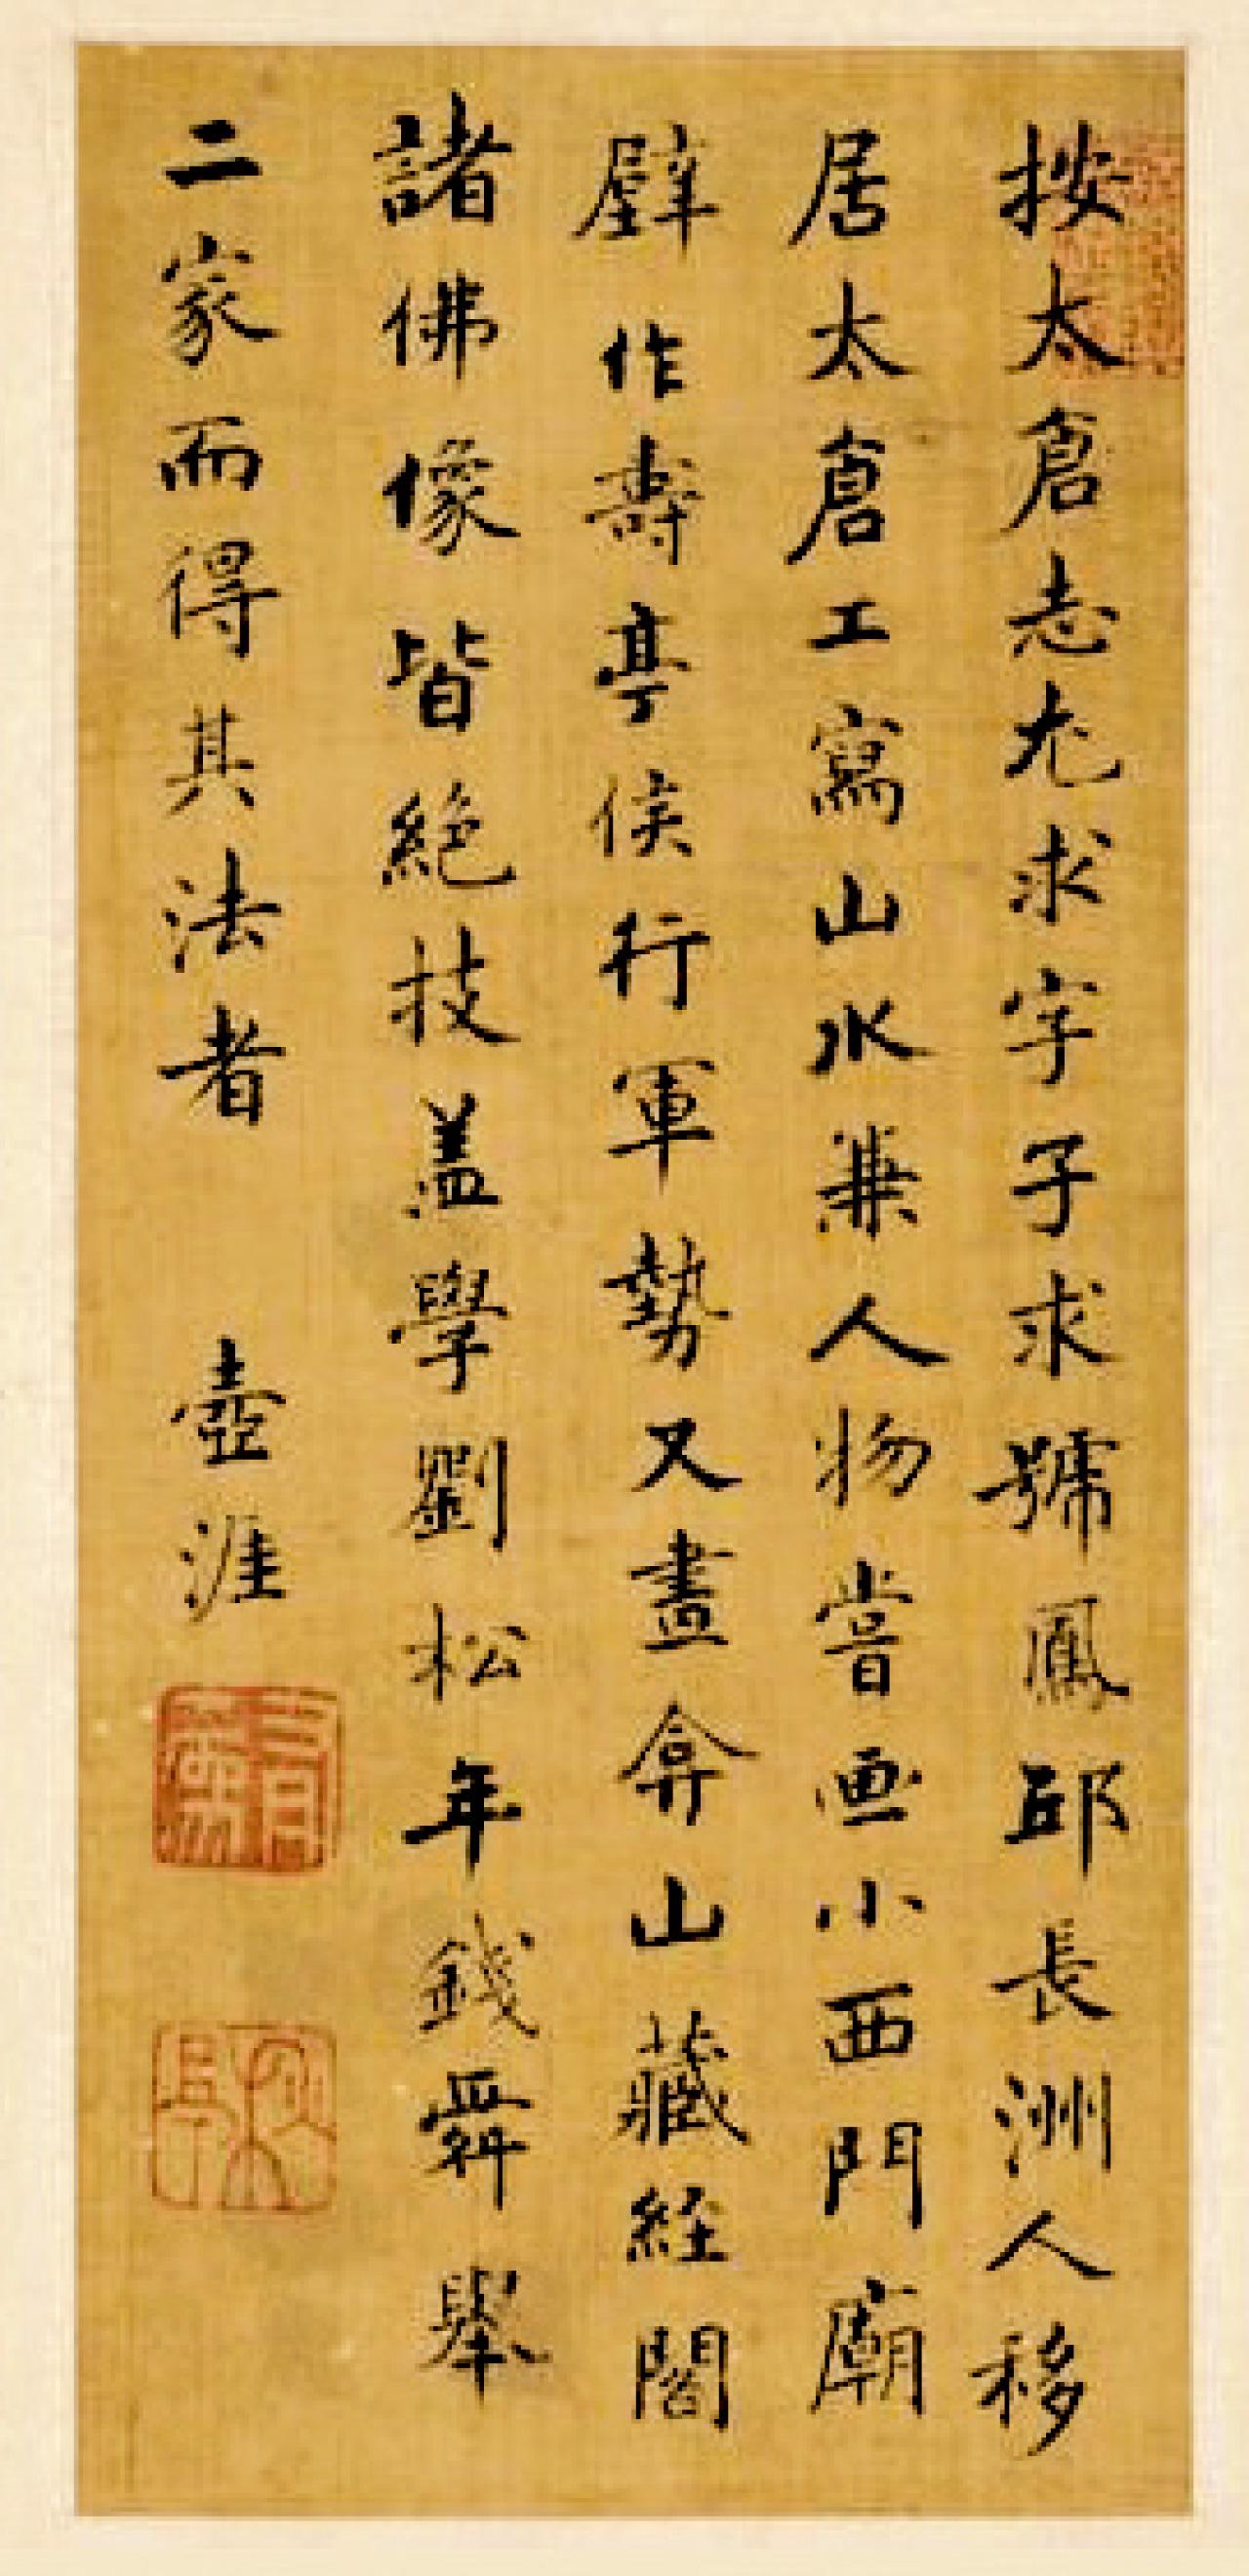 按太倉志尤求字子求號鳳邱長洲人移
居太倉工寫山水兼人物嘗画小西門廟
壁作壽亭侯行軍勢又畫弇山藏経閣
諸佛像皆絕技盖學劉松年錢舜舉
二家而得其法者 壺涯